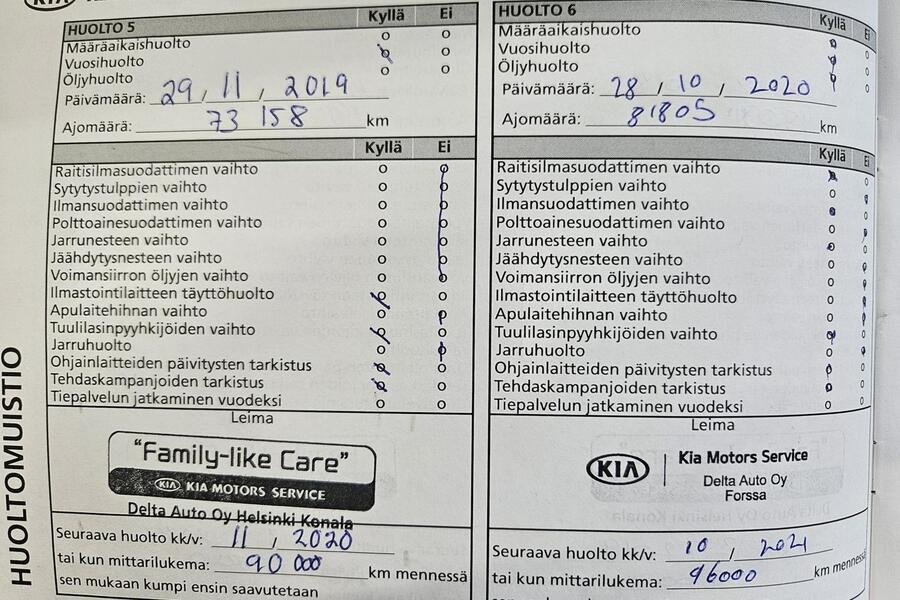 KIA
HUOLTOMUISTIO
HUOLTO 5 Kyllä Ei
Määräaikaishuolto
Vuosihuolto
Öljyhuolto
Päivämäärä: 29, 11, 2019
Ajomäärä: 73 158 km
Kyllä Ei
Raitisilmasuodattimen vaihto
Sytytystulppien vaihto
Ilmansuodattimen vaihto
Polttoainesuodattimen vaihto
Jarrunesteen vaihto
Jäähdytysnesteen vaihto
Voimansiirron öljyjen vaihto
Ilmastointilaitteen täyttöhuolto
Apulaitehihnan vaihto
Tuulilasinpyyhkijöiden vaihto
Jarruhuolto
Ohjainlaitteiden päivitysten tarkistus
Tehdaskampanjoiden tarkistus
Tiepalvelun jatkaminen vuodeksi
Leima
"Family-like Care"
KIA KIA MOTORS SERVICE
Delta Auto Oy Helsinki Konala
Seuraava huolto kk/v: 11, 2020
tai kun mittarilukema: 90 000 km mennessä
sen mukaan kumpi ensin saavutetaan
HUOLTO 6 Kyllä Ei
Määräaikaishuolto
Vuosihuolto
Öljyhuolto
Päivämäärä: 28, 10, 2020
Ajomäärä: 81805 km
Kyllä Ei
Raitisilmasuodattimen vaihto
Sytytystulppien vaihto
Ilmansuodattimen vaihto
Polttoainesuodattimen vaihto
Jarrunesteen vaihto
Jäähdytysnesteen vaihto
Voimansiirron öljyjen vaihto
Ilmastointilaitteen täyttöhuolto
Apulaitehihnan vaihto
Tuulilasinpyyhkijöiden vaihto
Jarruhuolto
Ohjainlaitteiden päivitysten tarkistus
Tehdaskampanjoiden tarkistus
Tiepalvelun jatkaminen vuodeksi
Leima
KIA Kia Motors Service
Delta Auto Oy
Forssa
Seuraava huolto kk/v: 10, 2021
tai kun mittarilukema: 96000 km mennessä